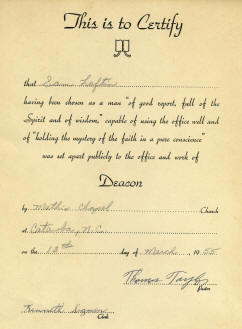 This is to Certify
that Sam Lofton
having been chosen as a man "of good report, full of the
Spirit and of wisdom," capable of using the office well and
of "holding the mystery of the faith in a pure conscience"
was set apart publicly to the office and work of
Deacon
by Chapel Church
at Catawba, N.C.
on the 13th day of March, 1955
Thomas
Pastor
Kenneth
Clerk